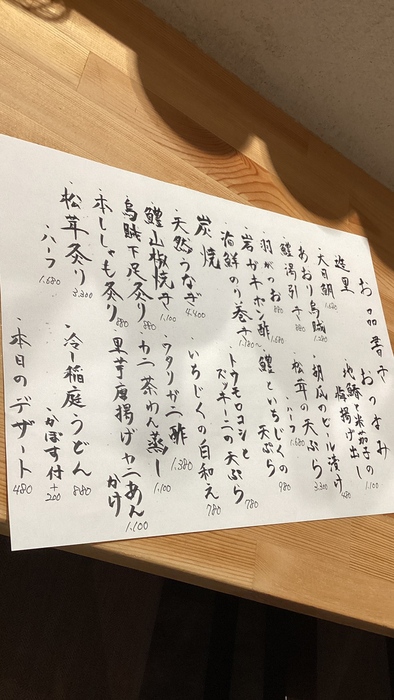 お品書き
造里
大目鯛 1.680
あおり烏賊 1.280
鱧湯引き 880
羽がつお 880
岩ガキポン酢 1.680
海鮮のり巻き 1.180〜
炭焼
天然うなぎ 4.400
鱧山椒焼き 1.100
烏賊下足炙り 880
本ししゃも炙り 880
松茸炙り 3.300
・ハーフ 1.680
おつまみ
地鱚と米茄子の
揚げ出し 1.100
胡瓜のビール漬け 480
松茸の天ぷら 3.300
・ハーフ 1.680
鱧といちじくの
天ぷら 980
トウモロコシと
ズッキーニの天ぷら 780
いちじくの白和え 780
ワタリガニ酢 1.380
カニ茶わん蒸し 1.100
里芋唐揚げカニあん
かけ 1.100
冷し稲庭うどん 880
・かぼす付 +200
本日のデザート 480